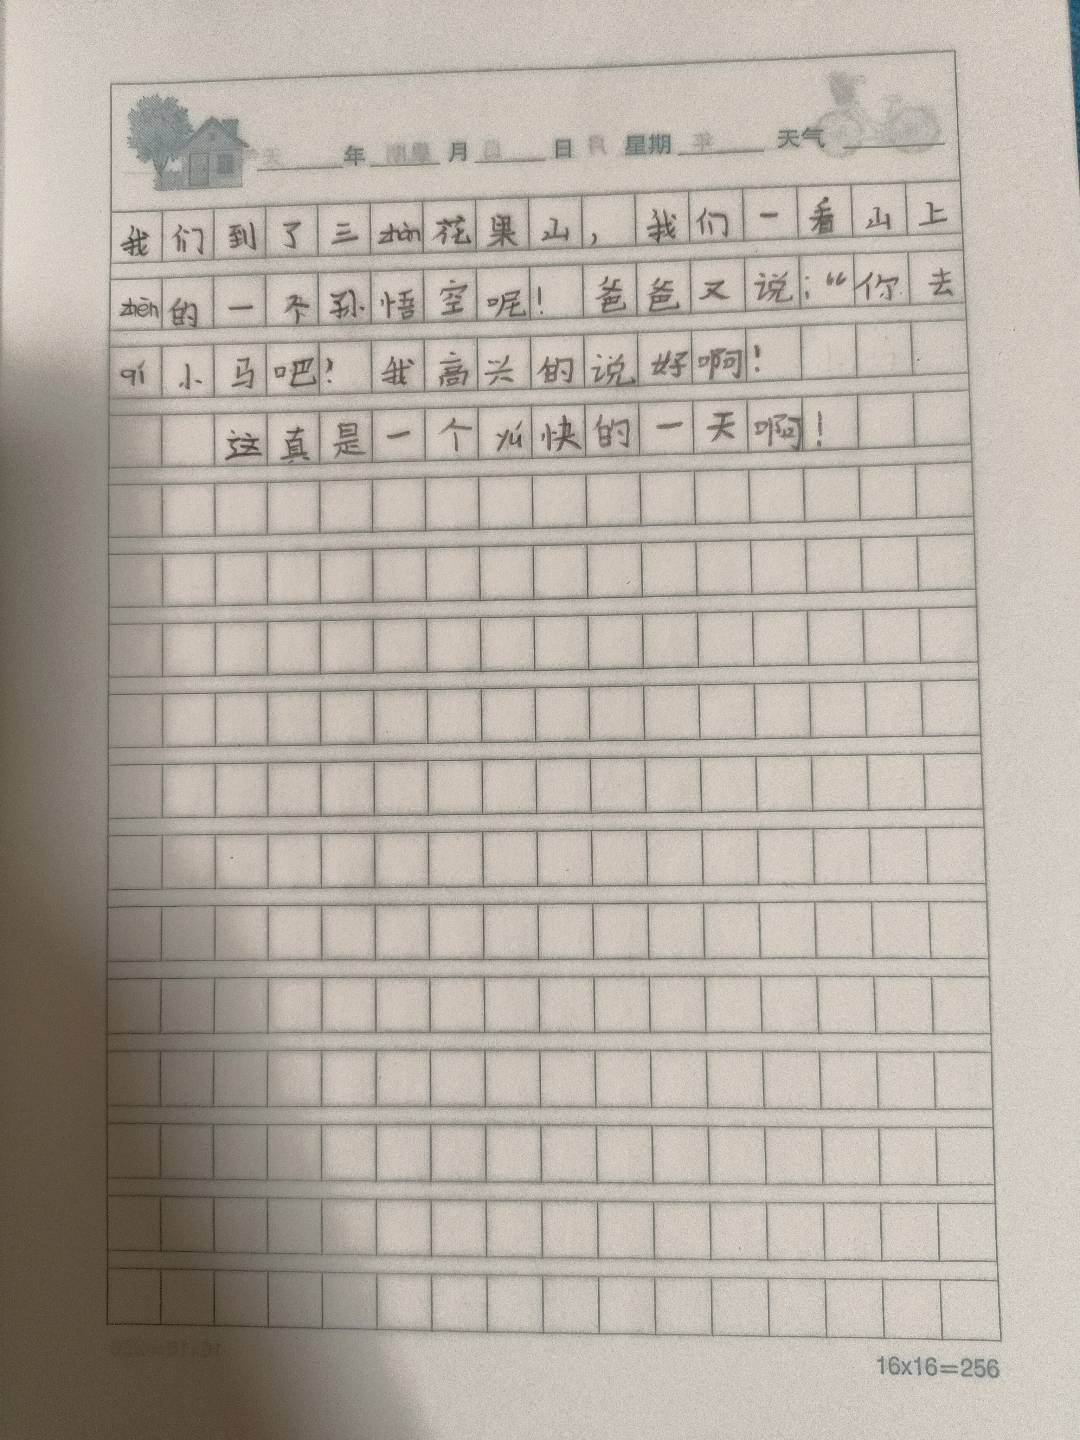 年 月 日 星期 天气
我们到了三zhàn花果山，我们一看山上
zhēn的一个孙悟空呢！爸爸又说：“你去
qí小马吧？我高兴的说好啊！
这真是一个yú快的一天啊！
16x16=256